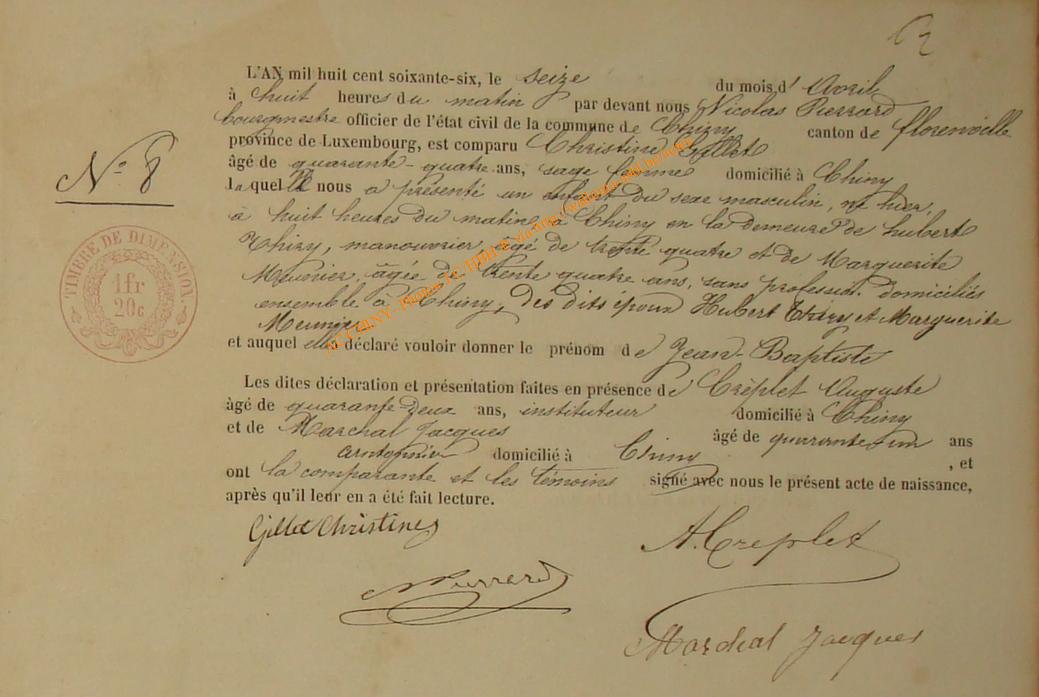 L'AN mil huit cent soixante-six, le seize du mois d'Avril
à huit heures du matin par devant nous Nicolas Pierrard
bourgmestre officier de l'état civil de la commune de Chiny canton de florenville
province de Luxembourg, est comparu Christine Gillet
âgé de quarante-quatre ans, sage femme domicilié à Chiny
laquelle nous a présenté un enfant du sexe masculin, né hier,
à huit heures du matin, à Chiny en la demeure de hubert
Thiry, manouvrier, âgé de trente quatre et de Marguerite
Meunier, âgée de trente quatre ans, sans profession domiciliés
ensemble à Chiny, des dits époux Hubert Thiry et Marguerite
Meunier
et auquel elle a déclaré vouloir donner le prénom de Jean-Baptiste
Les dites déclaration et présentation faites en présence de Crèplet Auguste
âgé de quarante deux ans, instituteur domicilié à Chiny
et de Marchal Jacques âgé de quarante un ans
domicilié à Chiny, et
ont la comparante et les témoins signé avec nous le présent acte de naissance,
après qu'il leur en a été fait lecture.
Gillet Christine
A. Creplet
N Pierrard
Marchal Jacques
N° 8
TIMBRE DE DIMENSION.
1fr
20c